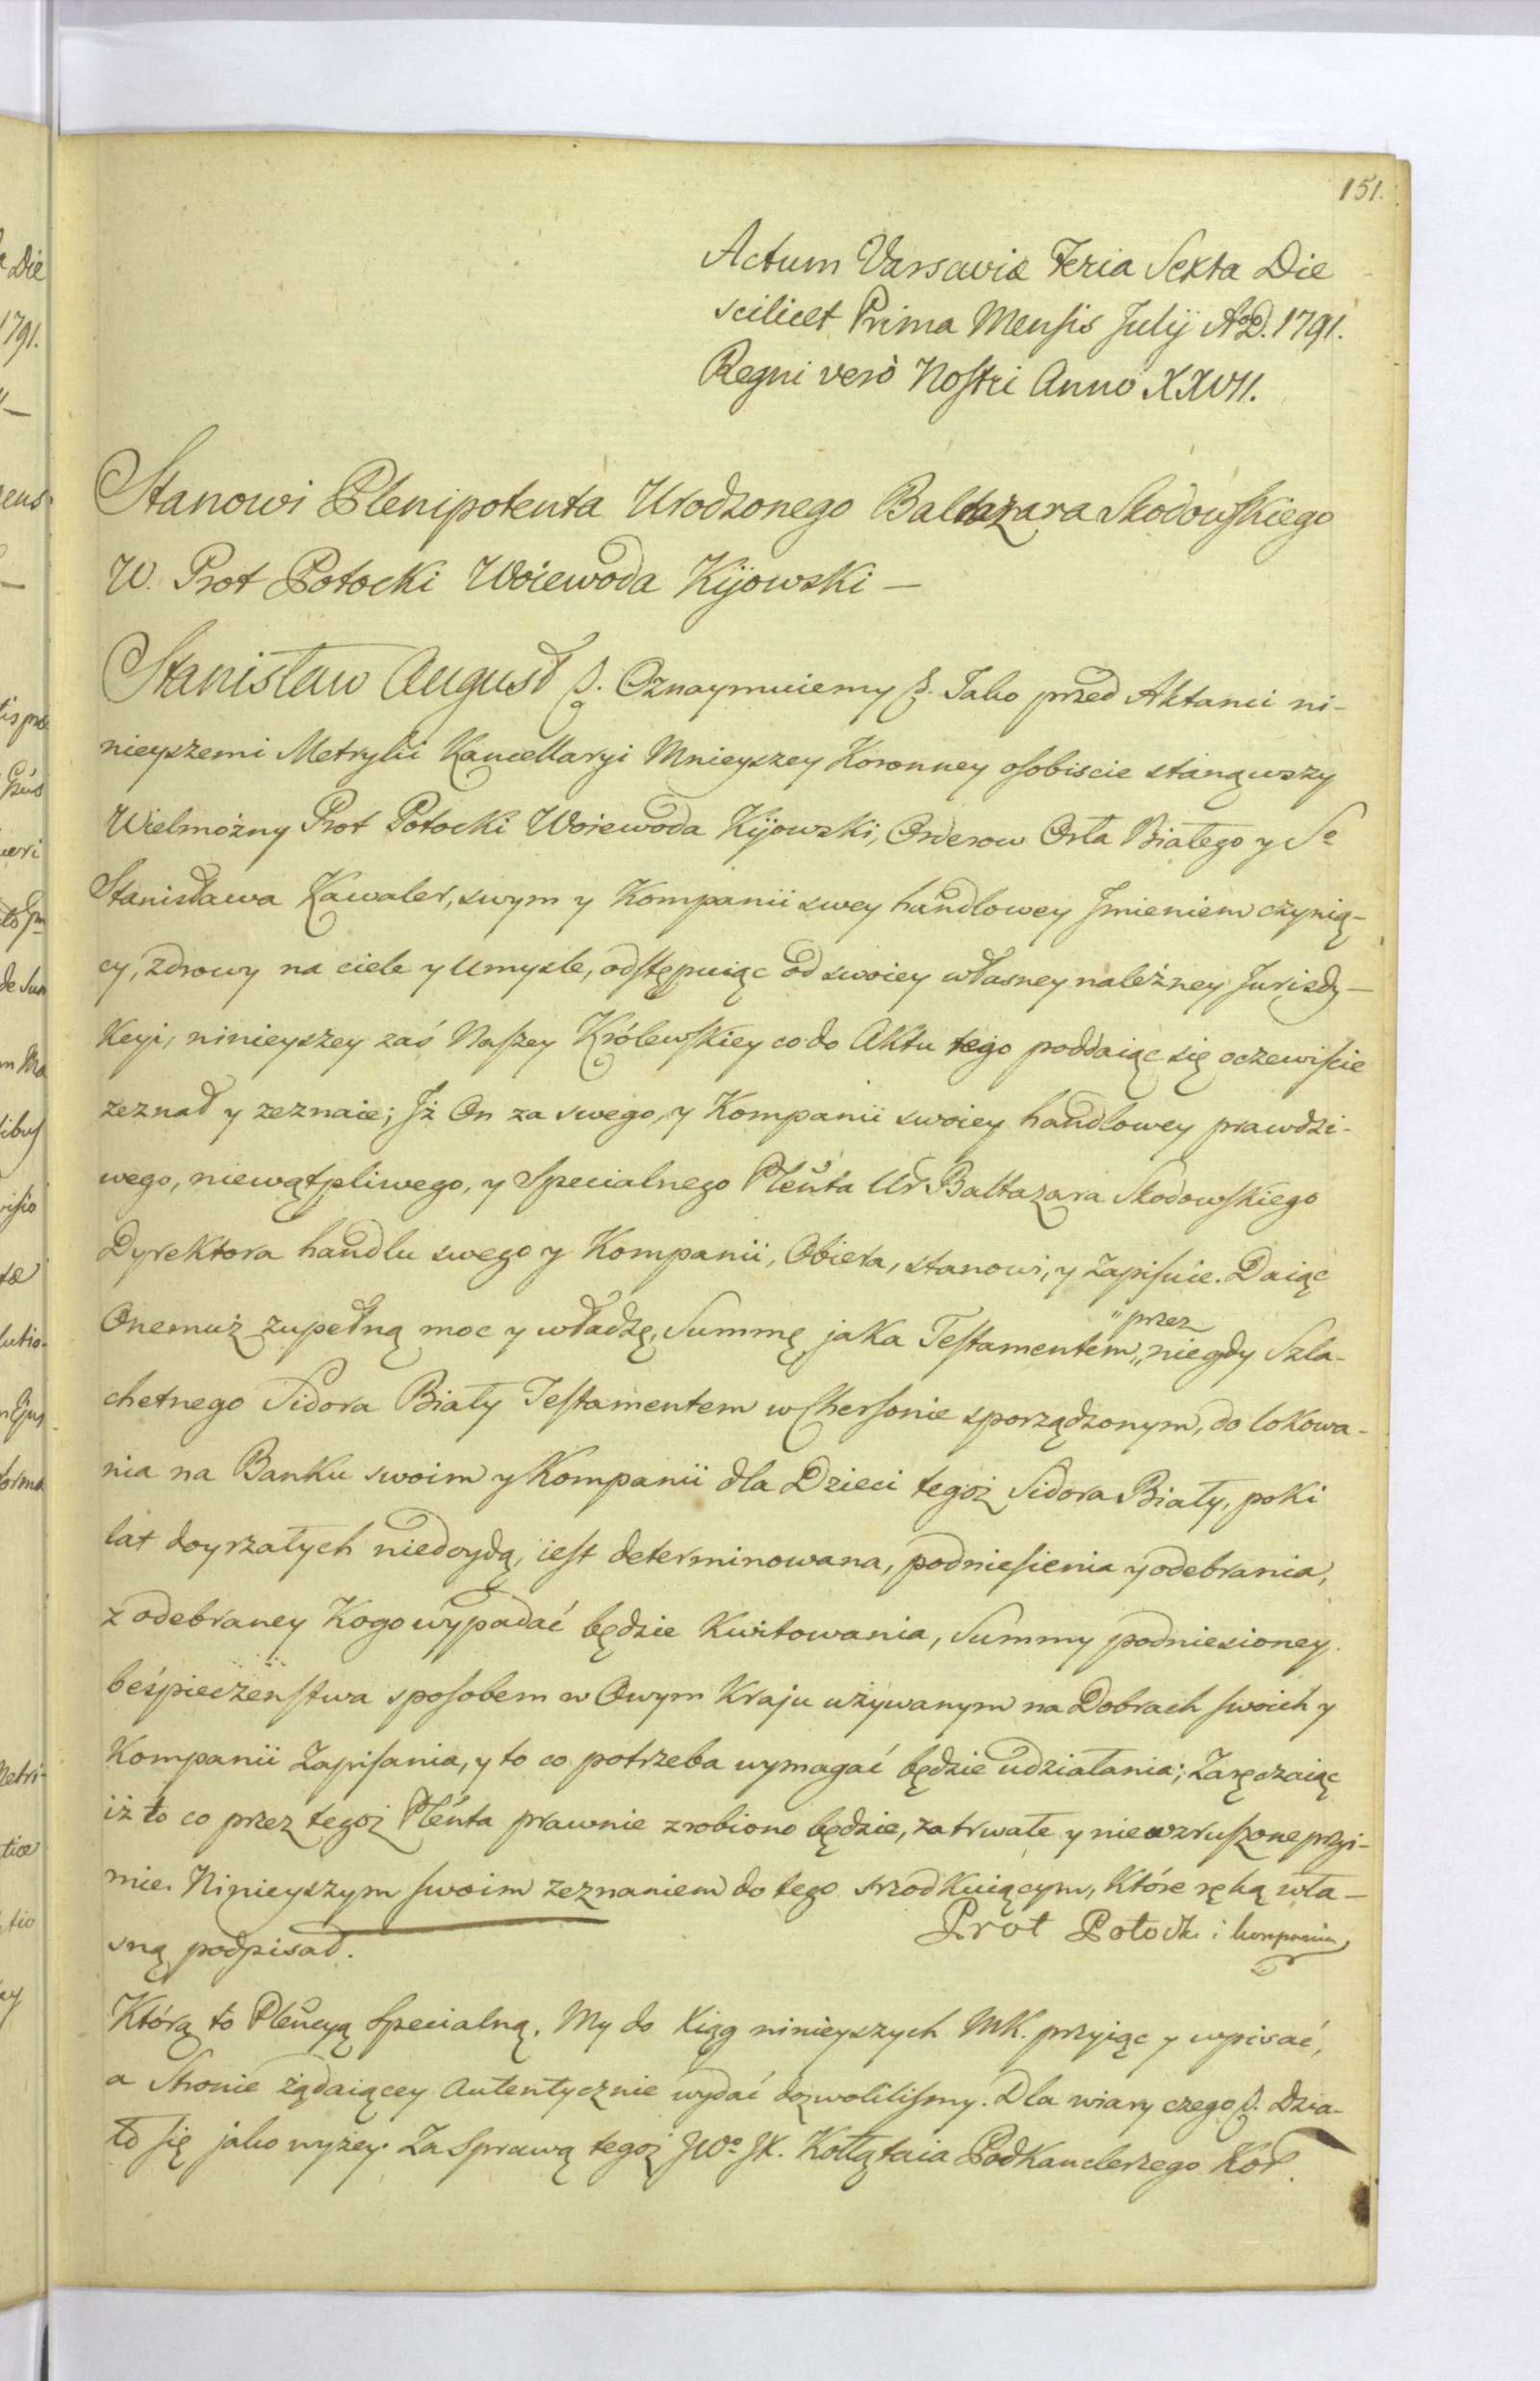 151.
Actum Varsaviæ Feria Sexta Die
scilicet Prima Mensis Julÿ A°D. 1791.
Regni verò Nostri Anno XXVII.
Stanowi Plenipotenta Urodzonego Baltazara Skodowskiego
W. Prot Potocki Woiewoda Kijowski —
Stanisław August &. Oznaymuiemy &. Jako przed Aktami ni-
nieyszemi Metryki Kancellaryi Mnieyszey Koronney osobiscie stanąwszy
Wielmożny Prot Potocki Woiewoda Kijowski, Orderow Orła Białego y Sº
Stanisława Kawaler, swym y Kompanii swey handlowey Jmieniem czynią-
cy, zdrowy na ciele y umysle, odstępuiąc od swoiey własney należney Jurisdy-
kcyi, ninieyszey zaś Naszey Królewskiey co do Aktu tego poddaiąc się oczewiście
zeznał y zeznaie; Jż On za swego, y Kompanii swoiey handlowey prawdzi-
wego, niewątpliwego, y Specialnego Pleńta Ur Baltazara Skodowskiego
Dyrektora handlu swego y Kompanii, Obiera, stanowi, y zapisuie. Daiąc
Onemuż zupełną moc y władzę, Summę jaka Testamentem „przez „niegdy Szla-
chetnego Sidora Biały Testamentem w Chersonie sporządzonym, do lokowa-
nia na Banku swoim y Kompanii dla Dzieci tegoż Sidora Biały, poki
lat doyrzałych niedoydą, iest determinowana, podniesienia y odebrania,
z odebraney Kogo wypadać będzie Kwitowania, Summy podniesioney
beśpieczeństwa sposobem w Owym Kraju używanym na Dobrach swoich y
Kompanii Zapisania, y to co potrzeba wymagać będzie udziałania; Zaręczaiąc
iż to co przez tegoż Pleńta prawnie zrobiono będzie, za trwałe y niewzruszone przyi-
mie. Ninieyszym swoim zeznaniem do tego srzodkuiącym, Które ręką wła-
sną podpisał. Prot Potocki i kompania
Którą to Pleńcyą Specialną, My do Xiąg ninieyszych MK. przyiąc y wpisać,
a Stronie żądaiącey Autentycznie wydać dozwolilismy. Dla wiary czego &. Dzia-
ło się jako wyżey. Za Sprawą tegoż JWº JX. Kołłątaia PodKanclerzego Kor.